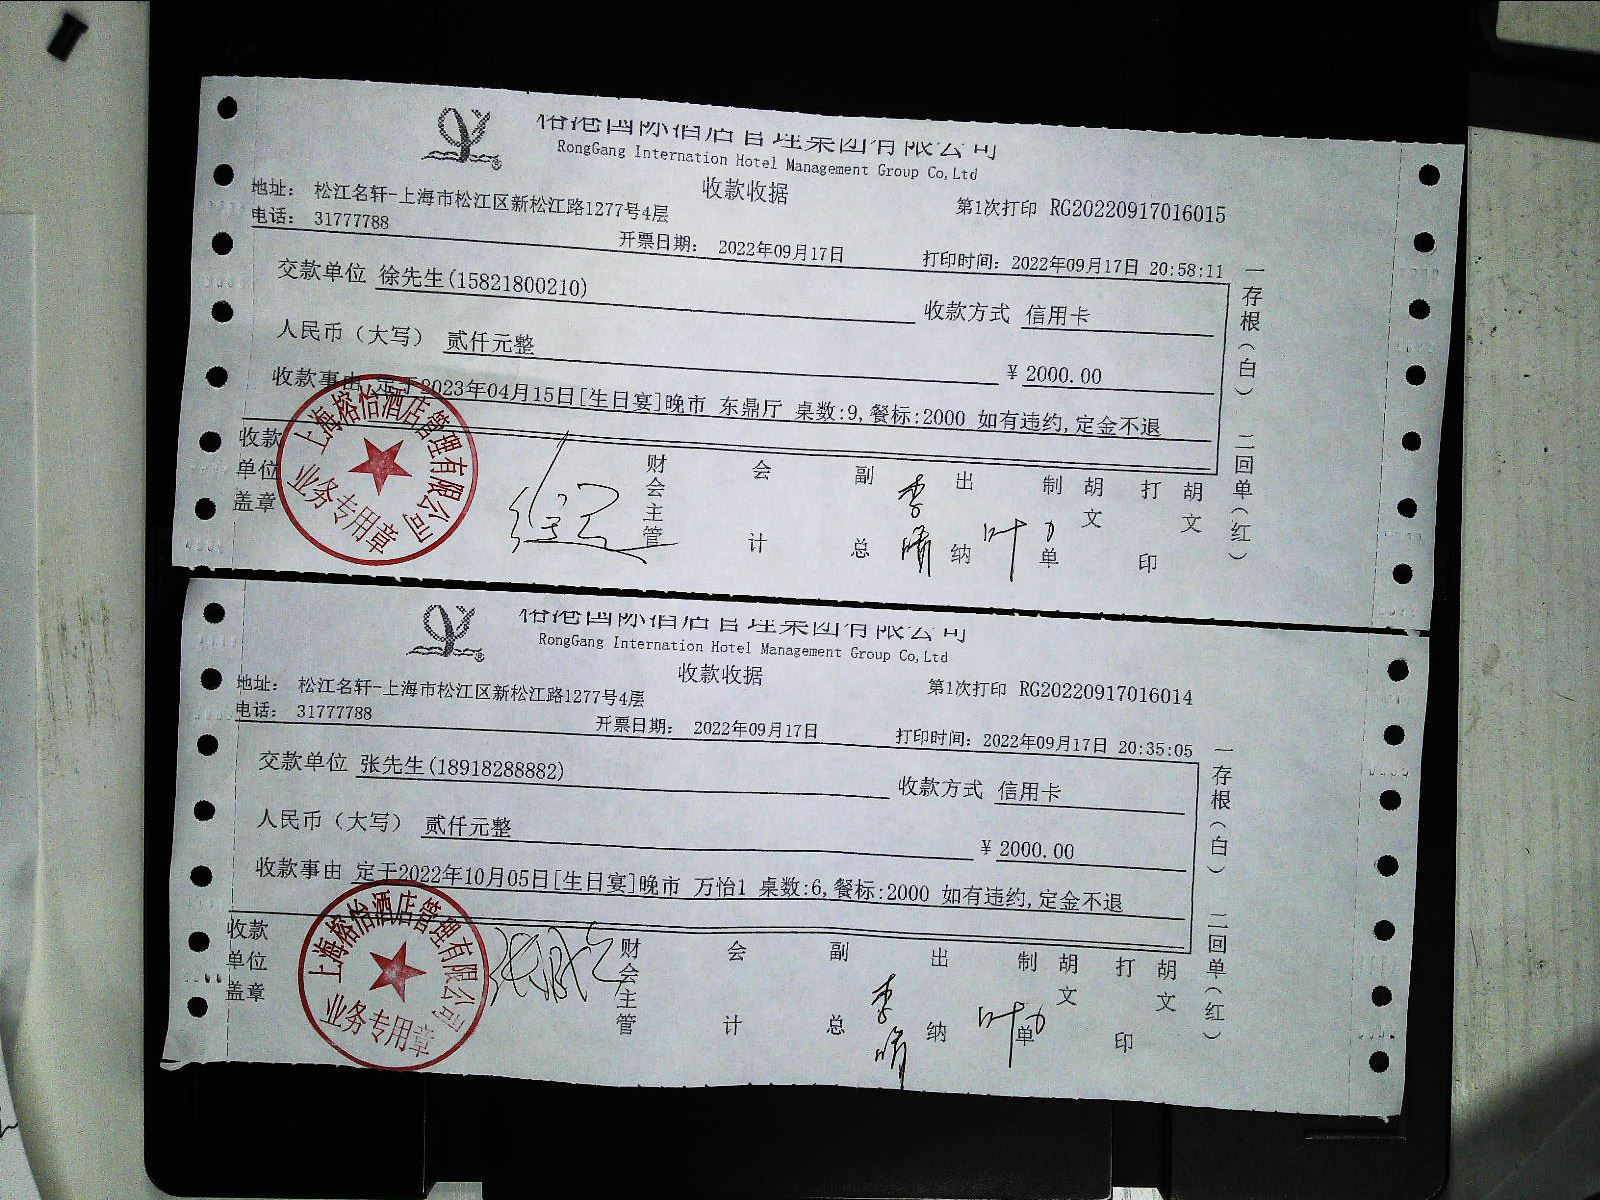 榕港国际酒店管理集团有限公司
RongGang Internation Hotel Management Group Co,Ltd
收款收据
地址： 松江名轩-上海市松江区新松江路1277号4层
第1次打印 RG20220917016015
电话： 31777788
开票日期： 2022年09月17日
打印时间：2022年09月17日 20:58:11
交款单位 徐先生(15821800210)
收款方式 信用卡
人民币（大写） 贰仟元整
¥ 2000.00
收款事由 定于2023年04月15日[生日宴]晚市 东鼎厅 桌数:9,餐标:2000 如有违约,定金不退
收款单位盖章
财会主管
会计
副总
李晴
出纳
叶
制单
胡文
打印
胡文
一存根（白） 二回单（红）
上海榕怡酒店管理有限公司
业务专用章
榕港国际酒店管理集团有限公司
RongGang Internation Hotel Management Group Co,Ltd
收款收据
地址： 松江名轩-上海市松江区新松江路1277号4层
第1次打印 RG20220917016014
电话： 31777788
开票日期： 2022年09月17日
打印时间：2022年09月17日 20:35:05
交款单位 张先生(18918288882)
收款方式 信用卡
人民币（大写） 贰仟元整
¥ 2000.00
收款事由 定于2022年10月05日[生日宴]晚市 万怡1 桌数:6,餐标:2000 如有违约,定金不退
收款单位盖章
财会主管
会计
副总
李晴
出纳
叶
制单
胡文
打印
胡文
一存根（白） 二回单（红）
上海榕怡酒店管理有限公司
业务专用章